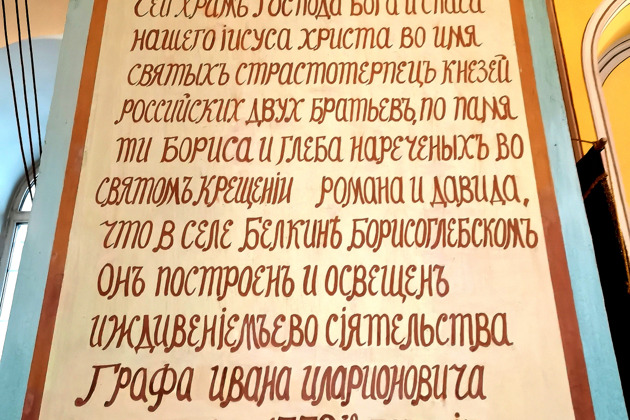 Сей храмъ Господа Бога и Спаса
нашего іисуса христа во имя
святыхъ страстотерпецъ князей
российских двух братьевъ, по памя
ти Бориса и Глеба нареченыхъ во
святомъ крещеніи романа и давида,
что в селе Белкинѣ Борисоглебскомъ
Онъ построенъ и освещенъ
иждивеніемъ ево сіятельства
Графа ивана иларионовича